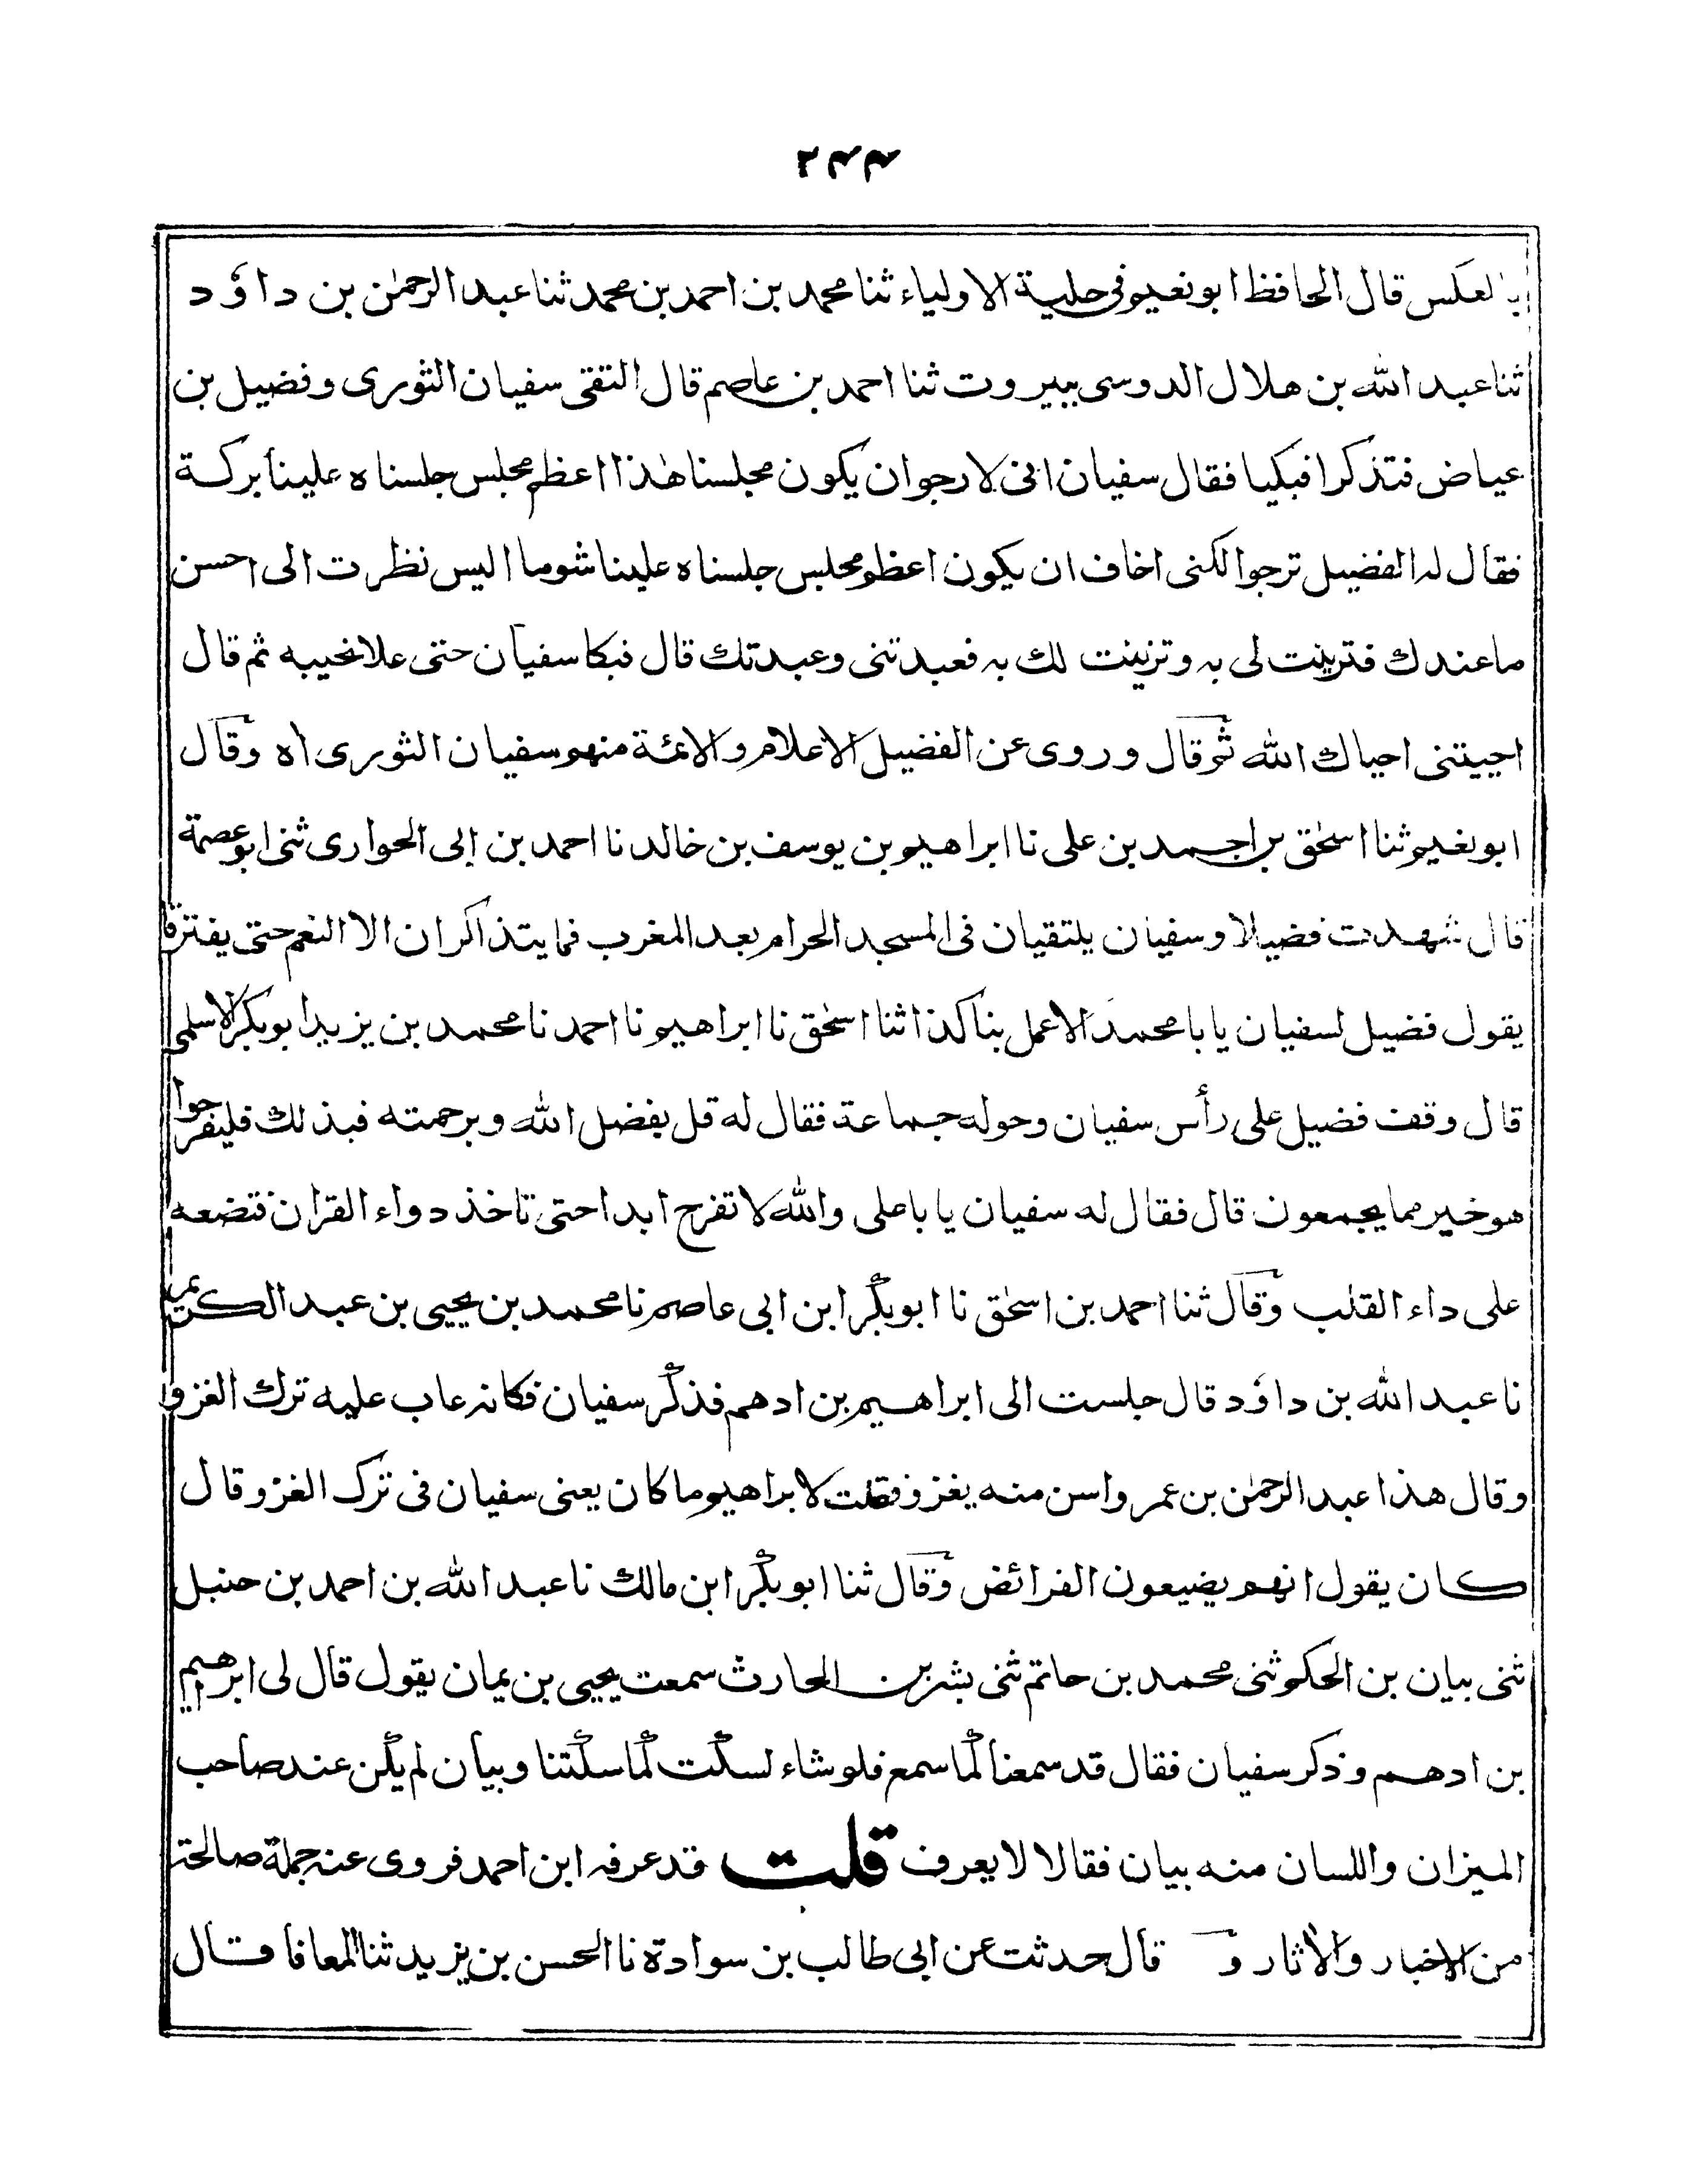 بالعكس قال الحافظ ابو نعيم فى حلية الاولياء ثنا محمد بن احمد بن محمد ثنا عبد الرحمٰن بن داؤد
ثنا عبد الله بن هلال الدوسى ببيروت ثنا احمد بن عاصم قال التقى سفيان الثورى وفضيل بن
عياض فتذكرا فبكيا فقال سفيان انى لارجو ان يكون مجلسنا هٰذا اعظم مجلس جلسناه علينا بركة
فقال له الفضيل ترجو الكنى اخاف ان يكون اعظم مجلس جلسناه علينا شوما اليس نظرت الى احسن
ما عندك فتزينت لى به وتزينت لك به فعبدتنى وعبدتك قال فبكا سفيان حتى علا نحيبه ثم قال
احييتنى احياك الله ثم قال وروى عن الفضيل الاعلام والائمة منهم سفيان الثورى اه وقال
ابو نعيم ثنا اسحٰق بن احمد بن على نا ابراهيم بن يوسف بن خالد نا احمد بن ابى الحوارى ثنى ابو عصمة
قال شهدت فضيلا وسفيان يلتقيان فى المسجد الحرام بعد المغرب فما يتذاكران الا النعم حتى يفترقا
يقول فضيل لسفيان يا با محمد الاعمل بنا كذا ثنا اسحٰق نا ابراهيم نا احمد نا محمد بن يزيد ابو بكر الاسلمى
قال وقف فضيل على رأس سفيان وحوله جماعة فقال له قل بفضل الله وبرحمته فبذلك فليفرحوا
هو خير مما يجمعون قال فقال له سفيان يا با على والله لا تفرح ابدا حتى تاخذ دواء القران فتضعه
على داء القلب وقال ثنا احمد بن اسحٰق نا ابو بكر ابن ابى عاصم نا محمد بن يحيى بن عبد الكريم
نا عبد الله بن داؤد قال جلست الى ابراهيم بن ادهم فذكر سفيان فكانه عاب عليه ترك الغزو
وقال هذا عبد الرحمٰن بن عمر واسن منه يغزو فقلت لابراهيم ما كان يعنى سفيان فى ترك الغزو قال
كان يقول انهم يضيعون الفرائض وقال ثنا ابو بكر ابن مالك نا عبد الله بن احمد بن حنبل
ثنى بيان بن الحكم ثنى محمد بن حاتم ثنى بشر بن الحارث سمعت يحيى بن يمان يقول قال لى ابرهيم
بن ادهم وذكر سفيان فقال قد سمعنا كما سمع فلو شاء لسكت كما سكتنا وبيان لم يكن عند صاحب
الميزان واللسان منه بيان فقالا لا يعرف قلت قد عرفه ابن احمد فروى عنه جملة صالحة
من الاخبار والاثار و قال حدثت عن ابى طالب بن سوادة نا الحسن بن يزيد ثنا المعافا قال